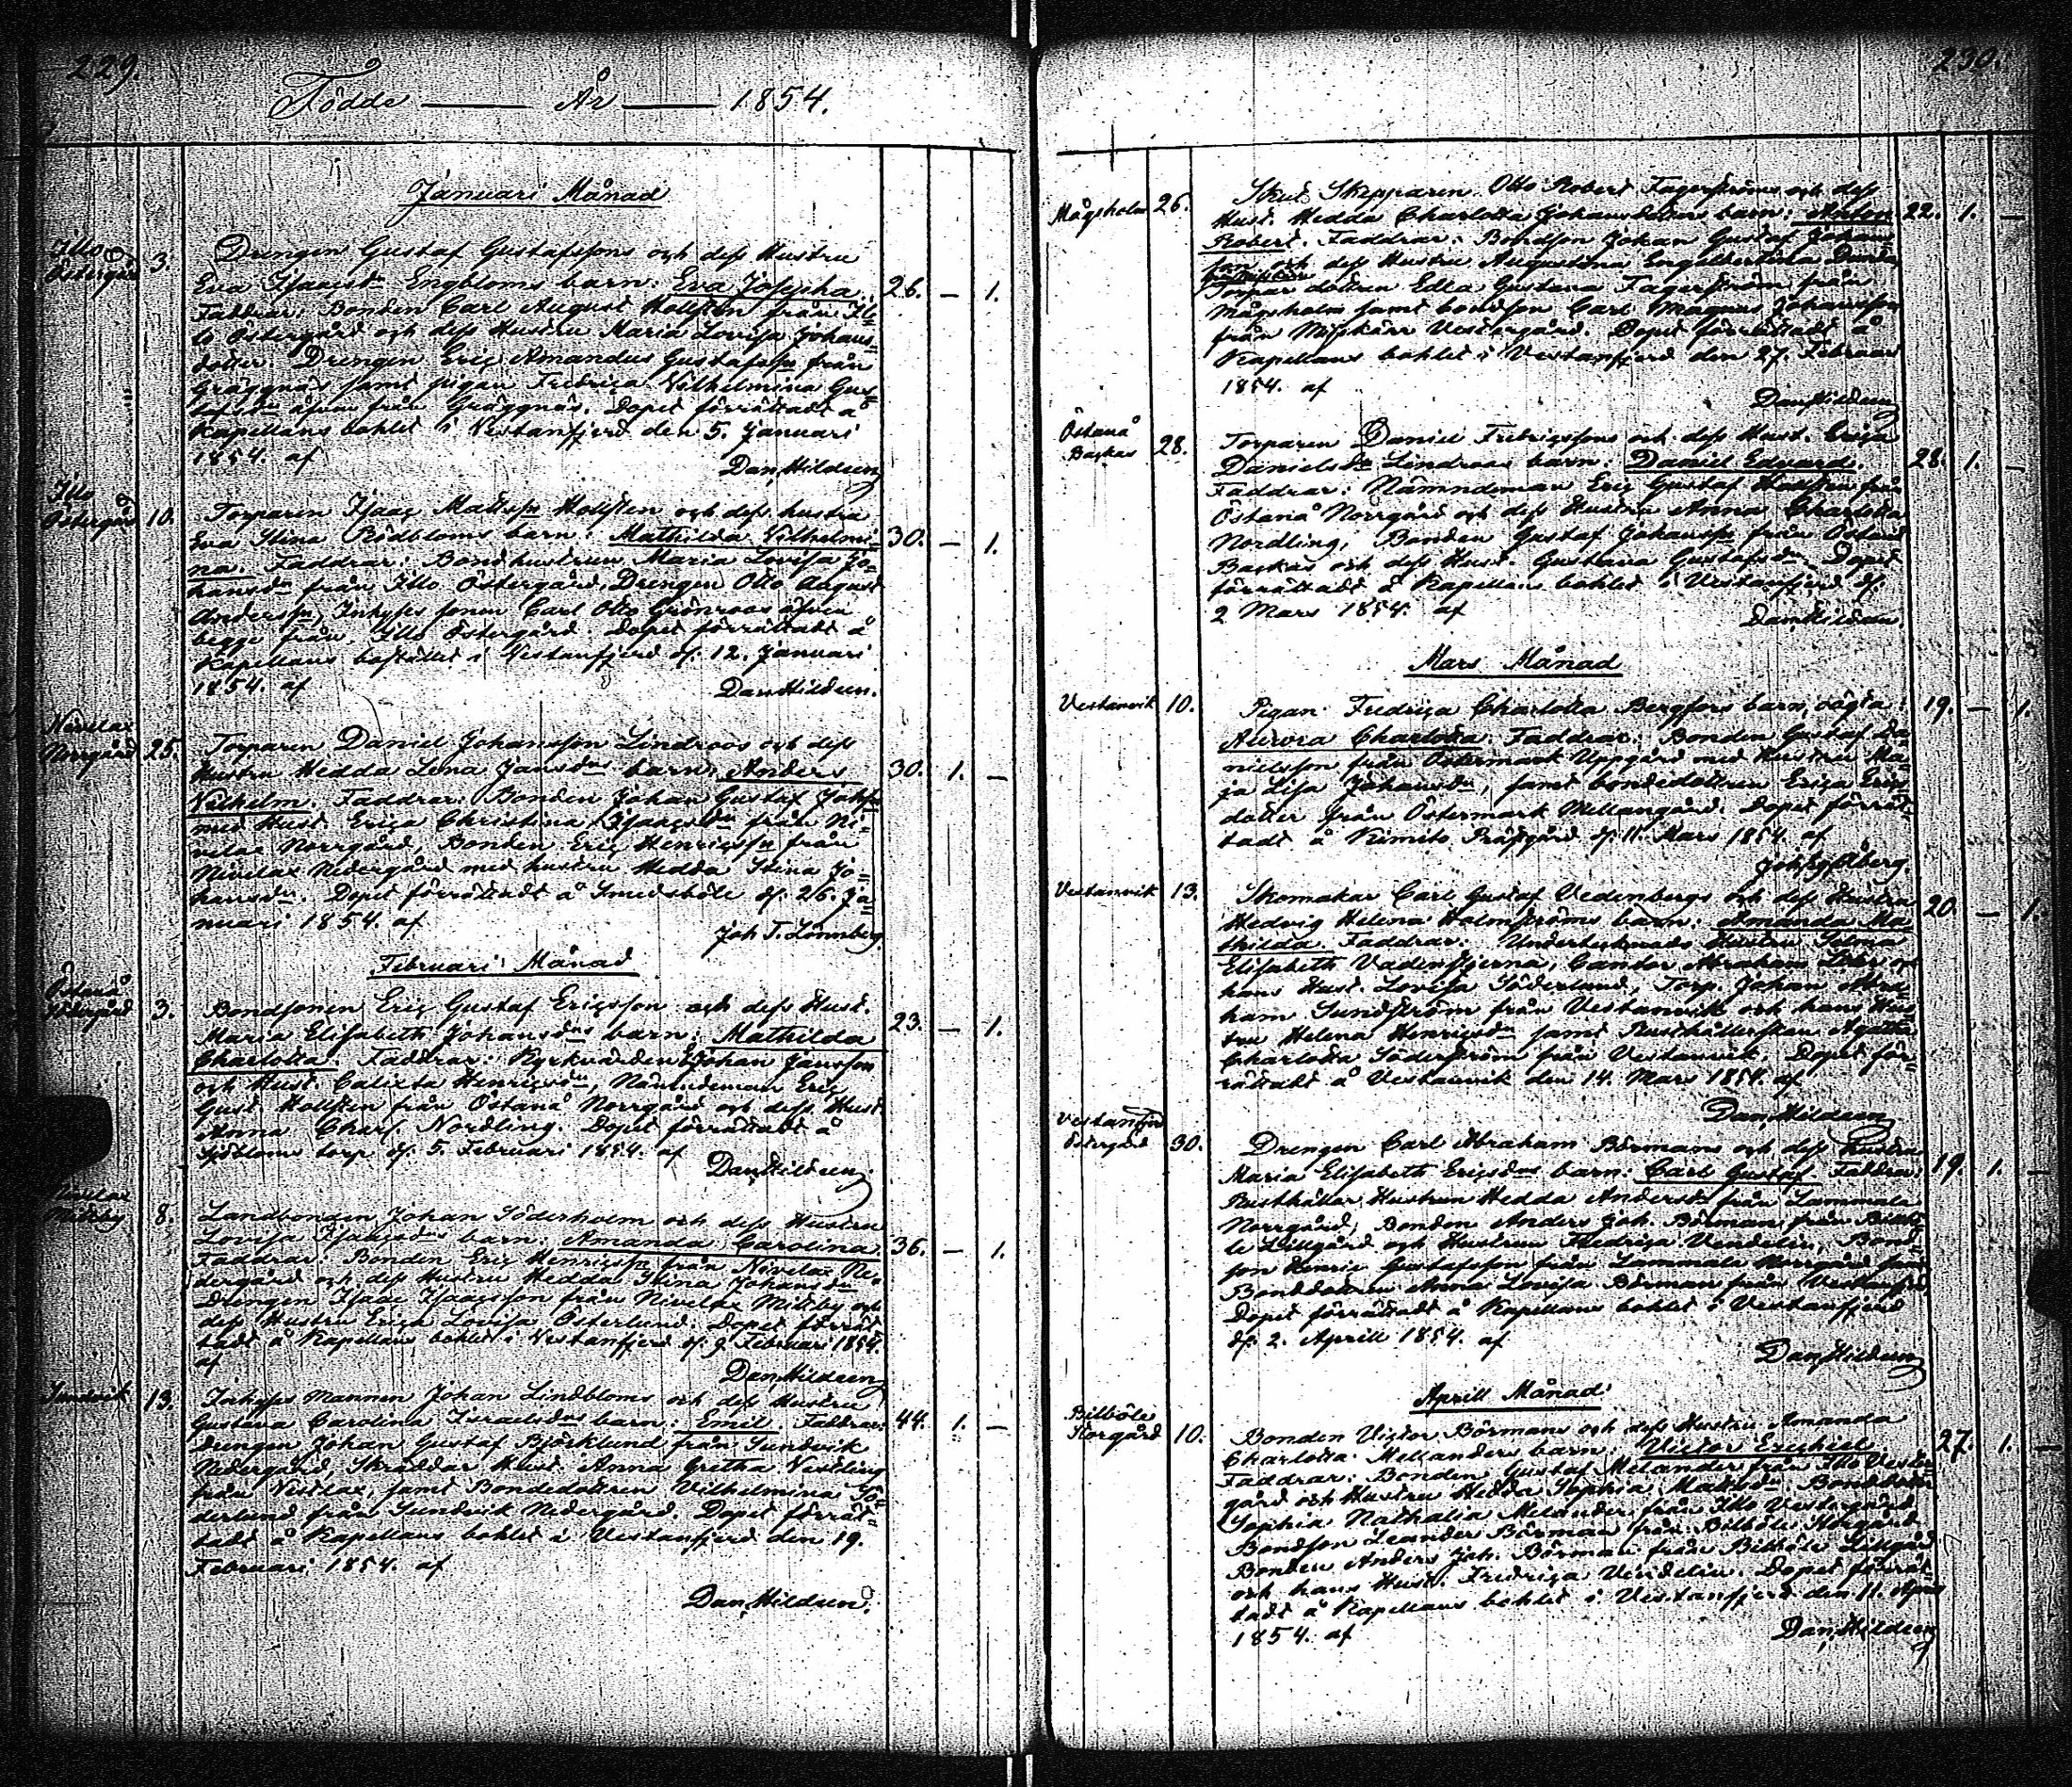 229.
Födde — År — 1854.
Januari Månad
Illo
Östergård 3.
Drengen Gustaf Gustafssons och dess Hustru
Eva Isaacsdr Engbloms barn: Eva Josepha. 26. — 1.
Faddrar: Bonden Carl August Hollsten från Il=
lo Östergård och dess Hustru Maria Lovisa Johans=
dotter. Drengen Eric Amandus Gustafssn från
Gräggnäs samt pigan Fredrica Vilhelmina Gus=
tafsdr äfven från Gräggnäs. Dopet förrättadt å
Kapellans bohlet i Vestanfjerd den 5. Januari
1854. af
Dan. Hildeen
Illo
Östergård 10.
Torparen Isaac Mattssn Hollsten och dess hustru
Eva Stina Rödbloms barn: Mathilda Vilhelmi= 30. — 1.
na. Faddrar: Bondhustrun Maria Lovisa Jo=
hansdr från Illo Östergård, Drengen Otto August
Anderssn, Inhyses sonen Carl Otto Grönroos äfven
begge från Illo Östergård. Dopet förrättadt å
Kapellans bostället i Vestanfjerd d. 12. Januari
1854. af
Dan. Hildeen.
Nivelax
Norrgård 25.
Torparen Daniel Johansson Lindroos och dess
Hustru Hedda Lena Jansdrs barn: Anders 30. 1. —
Vilhelm. Faddrar: Bonden Johan Gustaf
med Hust. Erica Christina Isaacsdr från Ni=
velax Norrgård, Bonden Eric Henricssn från
Nivelax Nedergård med hustru Hedda Stina Jo=
hansdr. Dopet förrättadt å Smedsböle d. 26. Ja=
nuari 1854. af
Joh. T. Lönnberg
Februari Månad
Östanå
3.
Bondsonen Eric Gustaf Ericsson och dess Hust.
Maria Elisabeth Johansdrs barn: Mathilda 23. — 1.
Charlotta. Faddrar: Kyrkvärden Johan Jansson
och Hust. Calixta Henricsdr, Nämndeman Eric
Gust. Hollsten från Östanå Norrgård och dess Hust.
Anna Charl. Nordling. Dopet förrättadt å
Sjöbloms torp d. 5. Februari 1854. af
Dan. Hildeen
Nivelax
Mitiby 8.
Landbonden Johan Söderholm och dess Hustru
Lovisa Isaacsdrs barn: Amanda Carolina 36. — 1.
Faddrar: Bonden Eric Henricssn från Nivelax Ne=
dergård och dess Hustru Hedda Stina Johansdr
Drengen Isaac Isaacsson från Nivelax Mitiby och
dess Hustru Erica Lovisa Österlund. Dopet förrät=
tadt å Kapellans bohlet i Vestanfjerd d. 9 Februari 1854.
af
Dan. Hildeen
Sundvik 13.
Inhyses mannen Johan Lindbloms och dess Hustru
Gustava Carolina Israelsdrs barn: Emil. Faddrar: 44. 1. —
drengen Johan Gustaf Björklund från Sundvik
Nedergård, Skräddar Hust. Anna Gretha Nestling
från Nestlax, samt Bondedottren Vilhelmina Sö=
derlund från Sundvik Nedergård. Dopet förrät=
tadt å Kapellans bohlet i Vestanfjerd den 19.
Februari 1854. af
Dan. Hildeen.
230.
Mågsholm 26.
Skut Skepparen Otto Robert Fagerströms och dess
Hust. Hedda Charlotta Johansdotters barn: Anton 22. 1. —
Robert. Faddrar: Bondson Johan Gustaf Johans=
son och dess Hustru Augustina Engelbertina
Torpar dottren Edla Gustava Fagerström från
Mågsholm samt bondson Carl Magnus Johansson
från Vestergård. Dopet förrättadt å
Kapellans bohlet i Vestanfjerd den 27. Februari
1854. af
Dan. Hildeen
Östanå
Backas 28.
Torparen Daniel Fredricssons och dess Hust. Erica
Danielsdr Lindroos barn: Daniel Edvard. 28. 1. —
Faddrar: Nämndeman Eric Gustaf Hollsten från
Östanå Norrgård och dess Hustru Anna Charlotta
Nordling, Bonden Gustaf Johanssn från Östanå
Backas och dess Hust. Gustava Gustafsdr. Dopet
förrättadt å Kapellans bohlet i Vestanfjerd d.
2 Mars 1854. af
Dan. Hildeen
Mars Månad
Vestanvik 10.
Pigan Fredrica Charlotta Bergfors barn oägta: 19. — 1.
Aurora Charlotta. Faddrar: Bonden Gustaf Da=
nielsson från Östermark Uppgård med Hustru Ma=
ja Lisa Johansdr, samt bondedottren Erica Erics=
dotter från Östermark Mellangård. Dopet förrät=
tadt å Kimito Prästgård d. 11. Mars 1854. af
Åberg.
Vestanvik 13.
Skomakar Carl Gustaf Vedenbergs och dess Hustru
Hedvig Helena Holmströms barn: Amanda Ma= 20. — 1.
thilda. Faddrar: Undertecknads Hustru Selma
Elisabeth Vadenstjerna, Cantor Abraham och
hans Hust. Lovisa Söderlund, Torp. Johan Abra=
ham Sundström från Vestanvik och hans Hus=
tru Helena Henricsdr samt Agatha
Charlotta Söderström från Vestanvik. Dopet för=
rättadt å Vestanvik den 14. Mars 1854. af
Dan. Hildeen
Vestanfjerd
Östergård 30.
Drengen Carl Abraham Börmans och dess Hustru
Maria Elisabeth Ericsdrs barn: Carl Gustaf. Faddrar: 19. 1. —
Rusthållar Hustrun Hedda Andersdr från Lammala
Norrgård, Bonden Anders Joh. Börman från Bilbö=
le Lillgård och Hustrun Fredrica Vendelin, Bond=
son Henric Gustafsson från Lammala Norrgård samt
Bonddottren Anna Lovisa Börman från Vestanfjerd
Dopet förrättadt å Kapellans bohlet i Vestanfjerd
d. 2. Aprill 1854. af
Dan. Hildeen
Aprill Månad
Bilböle
Norgård 10.
Bonden Victor Börmans och dess Hustru Amanda
Charlotta Mellanders barn: Victor Ezechiel. 27. 1. —
Faddrar: Bonden Gustaf Melander från Illo Vester=
gård och Hustru Hedda Sophia Mattsdr. Bonddottren
Sophia Nathalia Melander från Illo Vestergård
Bondson Leander Börman från Bilböle Norgård
Bonden Anders Joh. Börman från Bilböle Lillgård
och hans Hust. Fredrica Vendelin. Dopet förrät=
tadt å Kapellans bohlet i Vestanfjerd den 11. April
1854. af
Dan. Hildeen